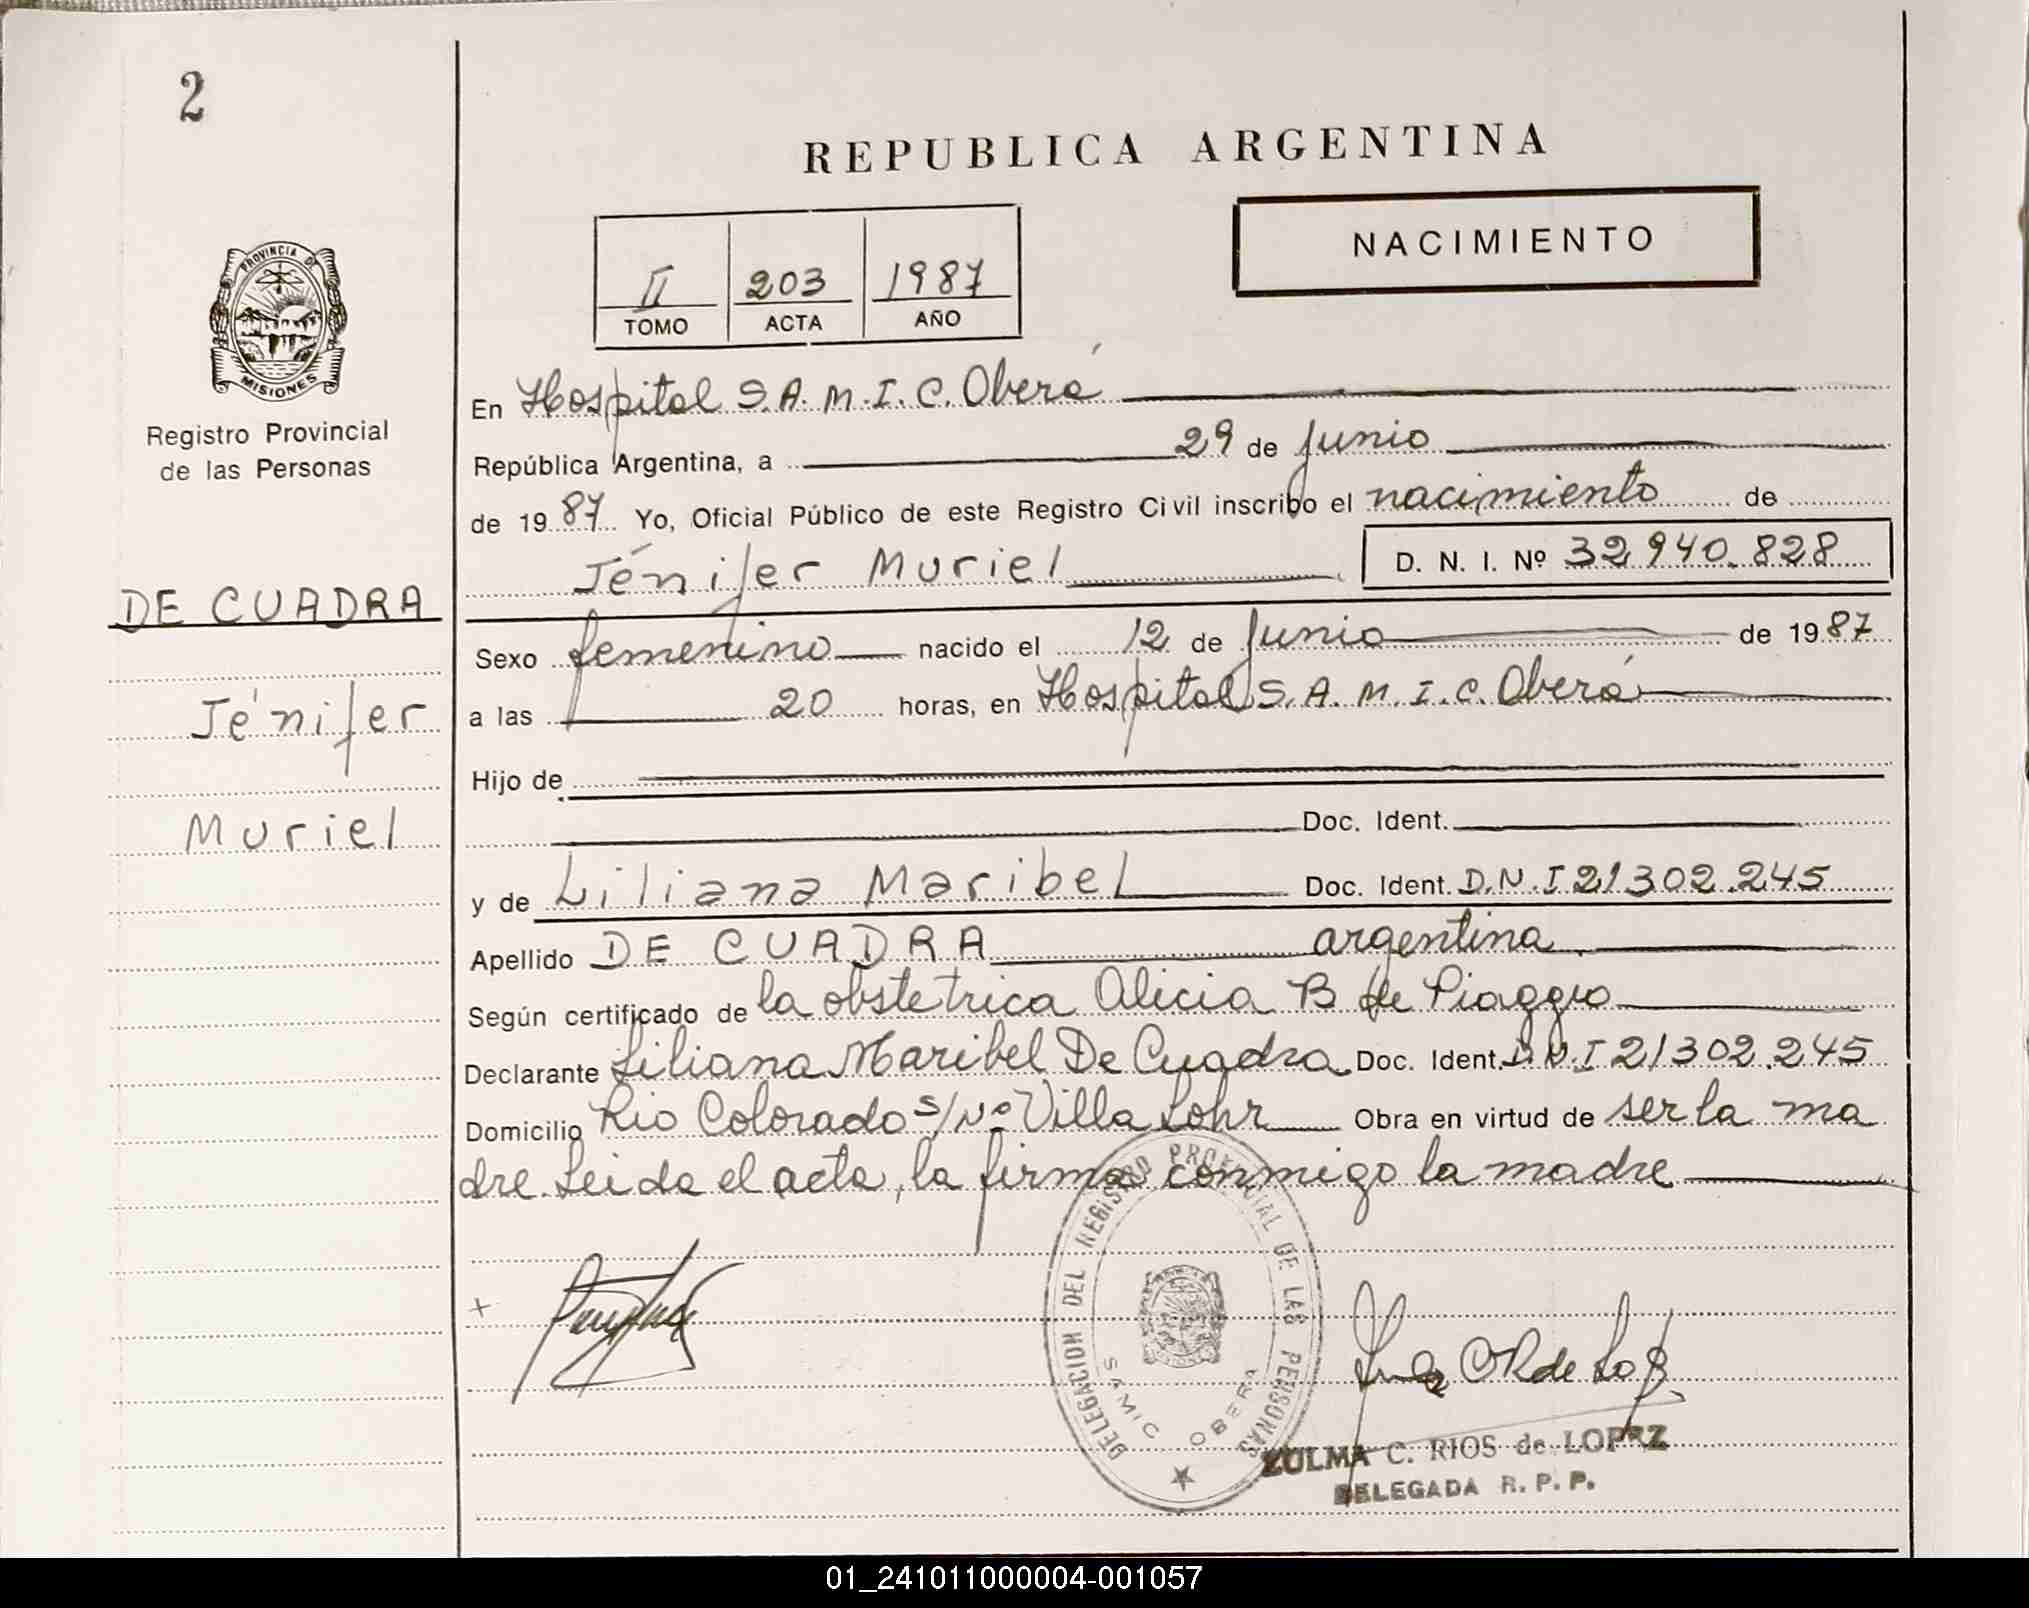 2
REPUBLICA ARGENTINA
NACIMIENTO
II 203 1987
TOMO ACTA AÑO
PROVINCIA DE
MISIONES
Registro Provincial
de las Personas
DE CUADRA
Jénifer
Muriel
En Hospital S.A.M.I.C. Oberá
República Argentina, a 29 de Junio
de 1987 Yo, Oficial Público de este Registro Civil inscribo el nacimiento de
Jénifer Muriel D. N. I. Nº 32.940.828
Sexo femenino nacido el 12 de Junio de 1987
a las 20 horas, en Hospital S.A.M.I.C. Oberá
Hijo de
Doc. Ident.
y de Liliana Maribel Doc. Ident. D.N.I 21302.245
Apellido DE CUADRA argentina
Según certificado de la obstetrica Alicia B de Piaggio
Declarante Liliana Maribel De Cuadra Doc. Ident. D.N.I 21302.245
Domicilio Rio Colorado s/Nº Villa Lohr Obra en virtud de ser la ma
dre. Leida el acta, la firma conmigo la madre
DELEGACION DEL REGISTRO PROVINCIAL DE LAS PERSONAS
SAMIC OBERA
ZULMA C. RIOS de LOPEZ
DELEGADA R. P. P.
01_241011000004-001057